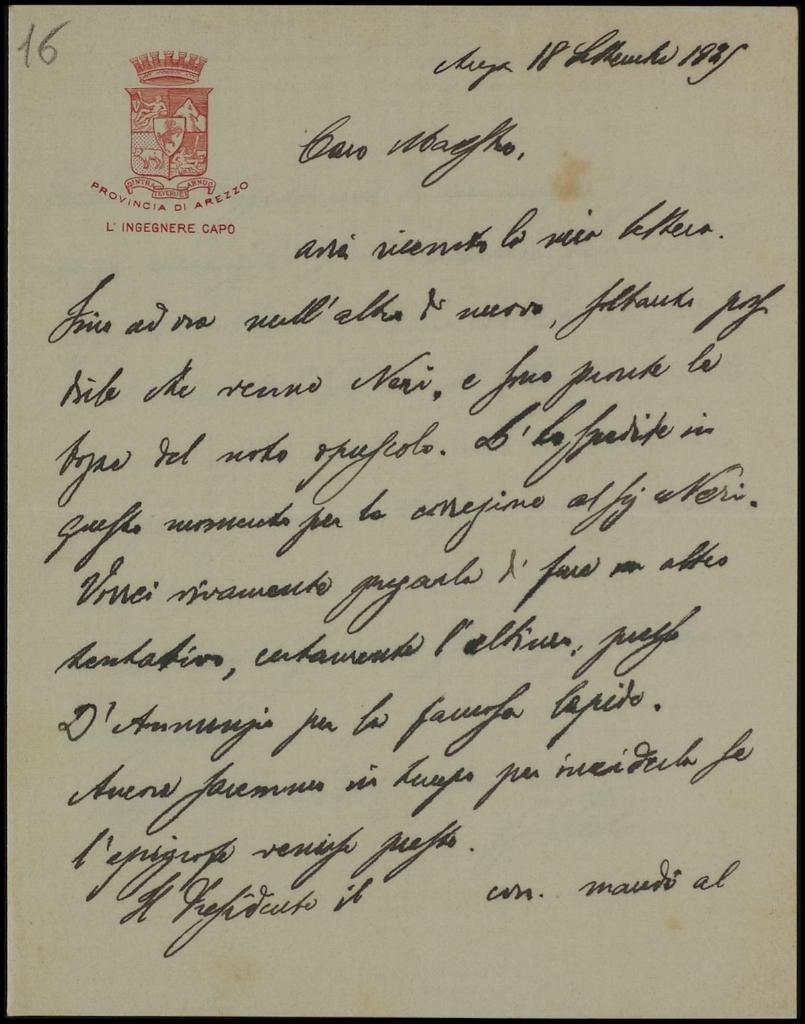 16
Arezzo 18 Settembre 1925
INTRA TEVERUM ARNUS
PROVINCIA DI AREZZO
L'INGEGNERE CAPO
Caro Maestro,
avrà ricevuto la mia lettera.
Fino ad ora null'altro di nuovo, soltanto pos
sibile che venne Neri, e sono pronte le
bozze del noto opuscolo. L'ho spedite in
questo momento per la correzione al Sig Neri.
Vorrei vivamente pregarla di fare un altro
tentativo, certamente l'ultimo, presso
D'Annunzio per la famosa lapide.
Ancora saremmo in tempo per inciderla se
l'epigrafe venisse presto.
Il Presidente il con. mandò al